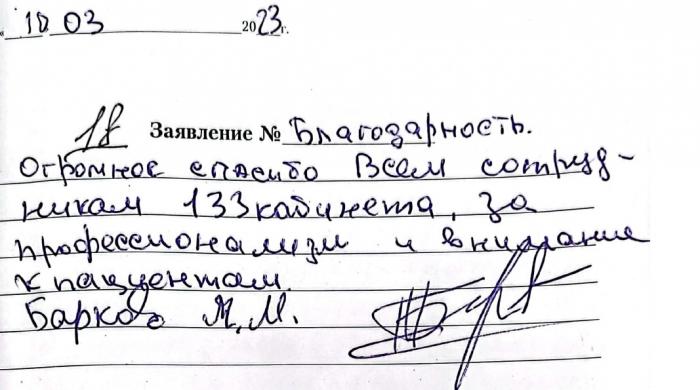 « 10 03 2023г.
18 Заявление № Благодарность.
Огромное спасибо Всем сотруд-
никам 133 кабинета, за
профессионализм и внимание
к пациентам.
Барков